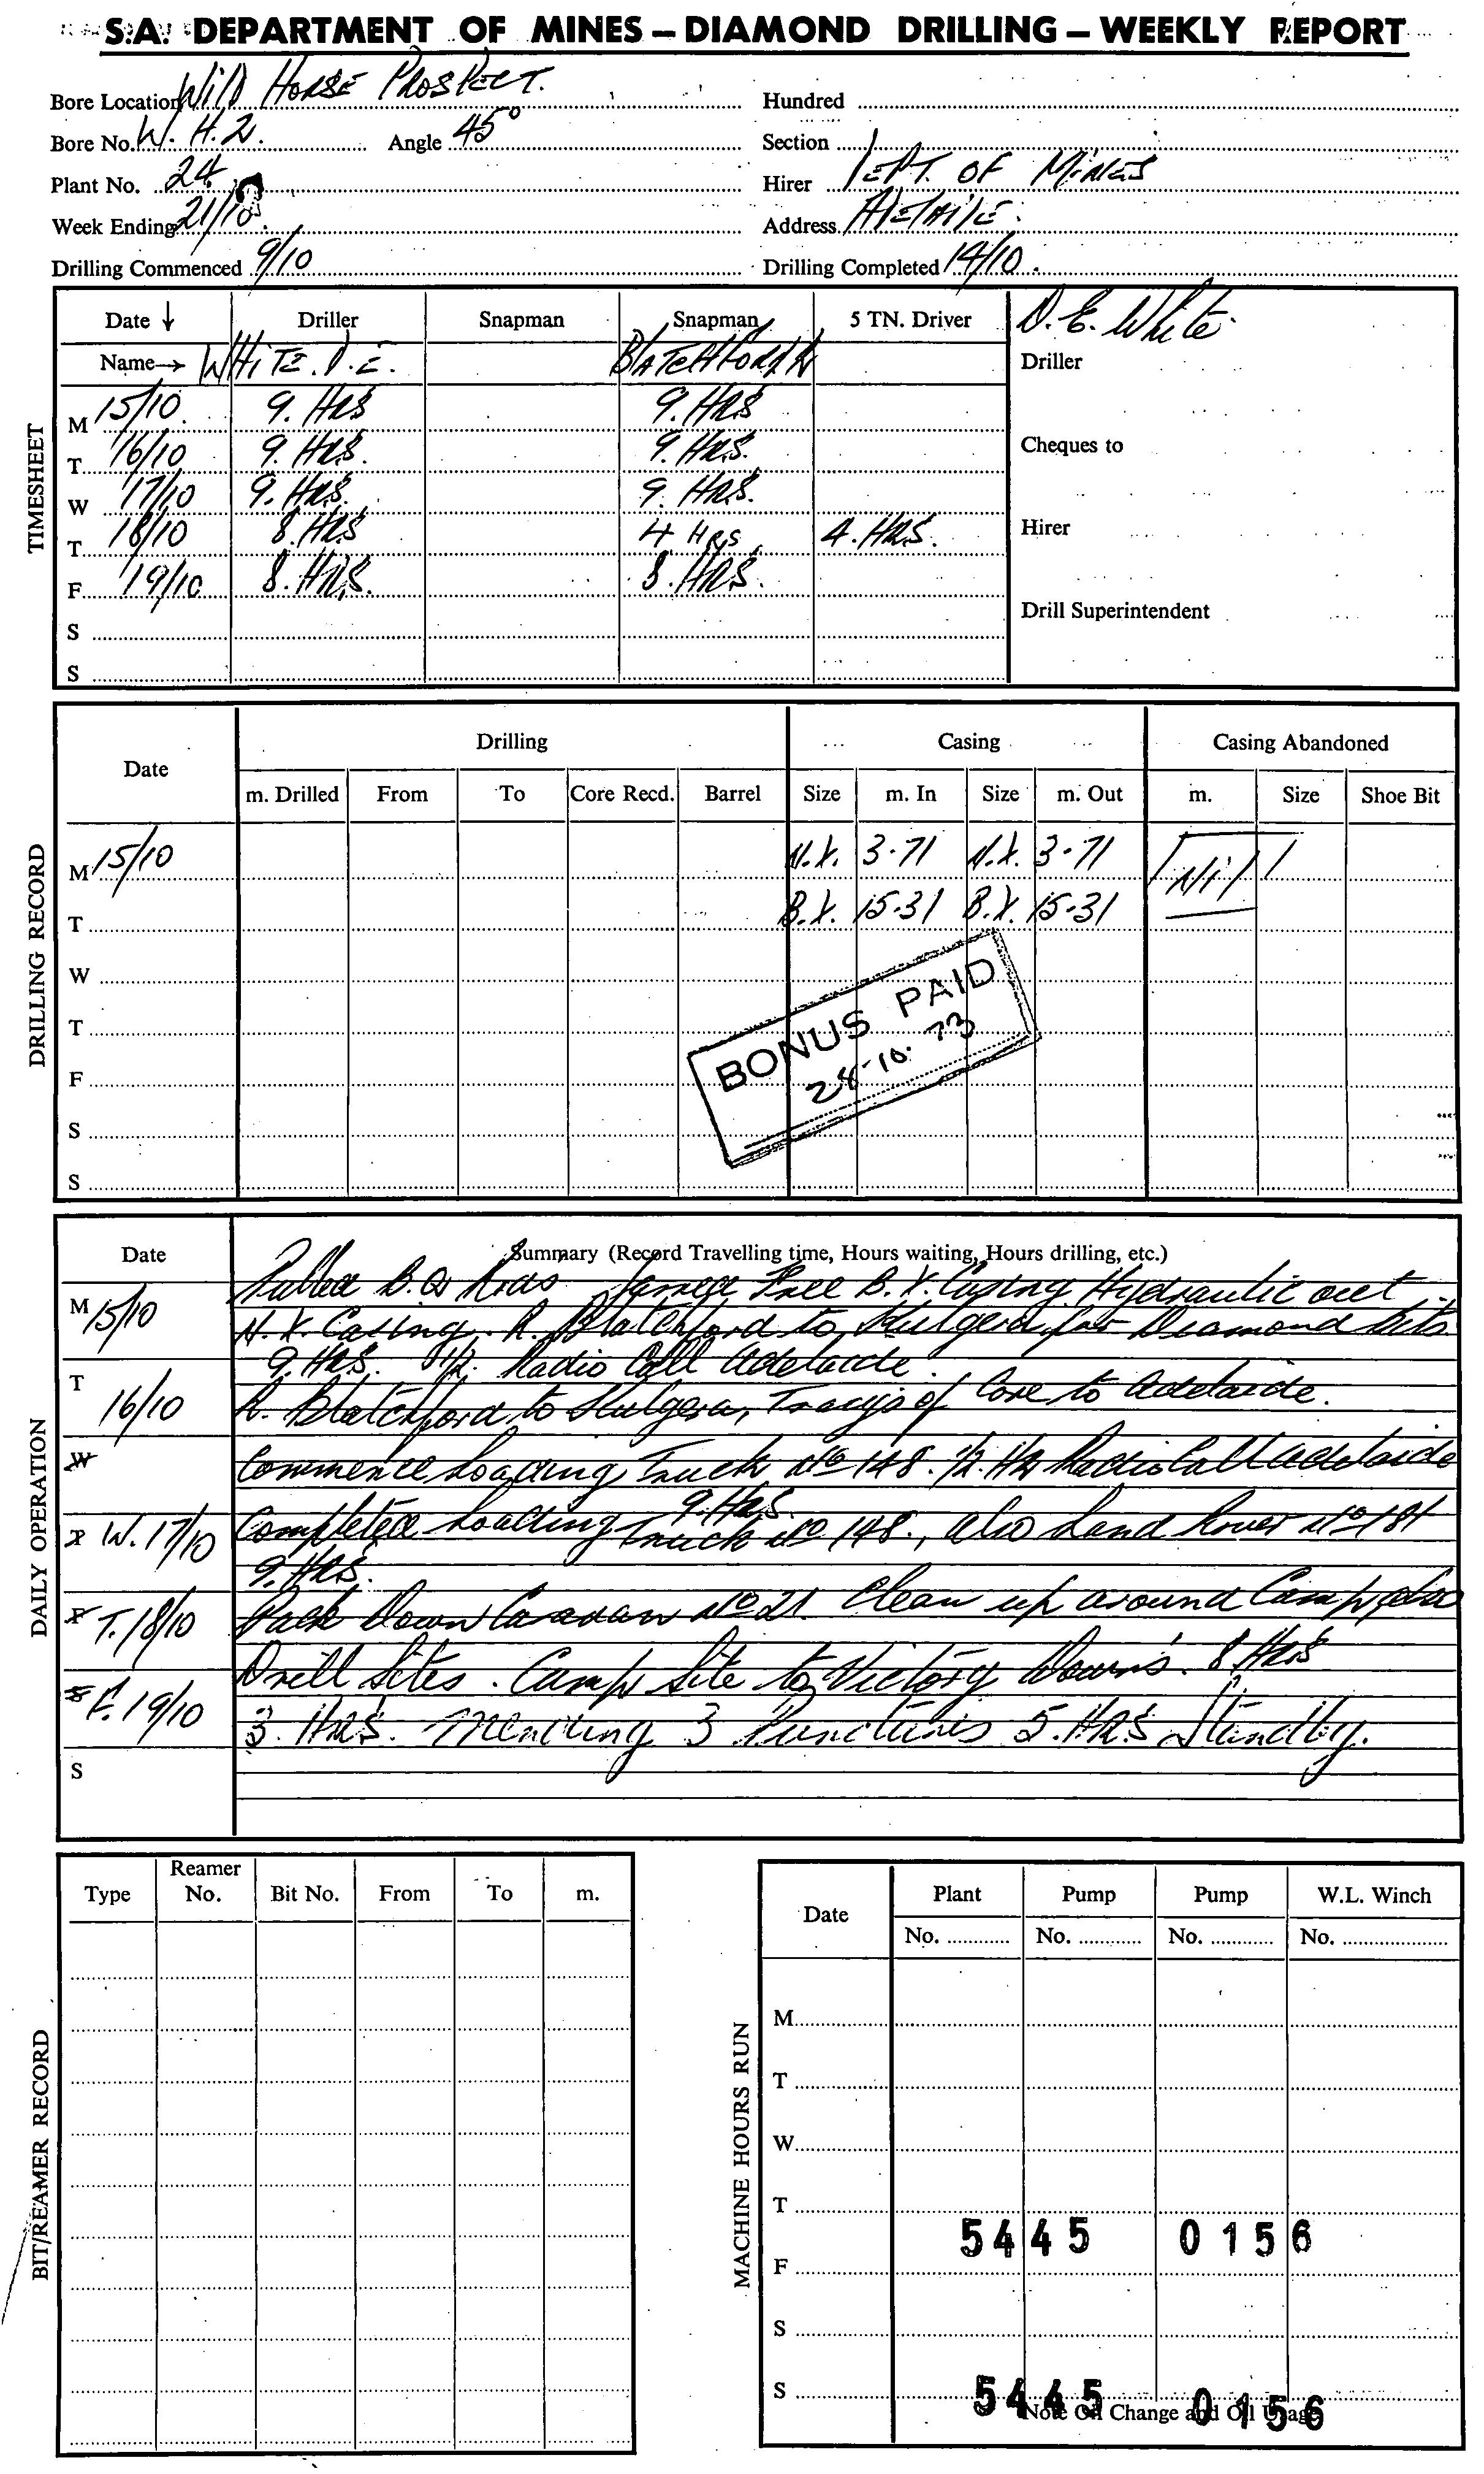 S.A. DEPARTMENT OF MINES – DIAMOND DRILLING – WEEKLY REPORT
Bore Location WILD HORSE PROSPECT. Hundred
Bore No. W. H. 2. Angle 45° Section
Plant No. 24 Hirer DEPT. OF MINES
Week Ending 21/10. Address
Drilling Commenced 9/10 Drilling Completed 14/10.
TIMESHEET
Date ↓ Driller Snapman Snapman 5 TN. Driver D. E. White
Name→ WHITE. D. E. BLATCHFORD R Driller
M 15/10 9. HRS 9. HRS
T 16/10 9. HRS. 9. HRS. Cheques to
W 17/10 9. HRS. 9. HRS.
T 18/10 8. HRS 4 HRS 4. HRS. Hirer
F 19/10 8. HRS. 8. HRS.
S Drill Superintendent
S
DRILLING RECORD
Date Drilling Casing Casing Abandoned
m. Drilled From To Core Recd. Barrel Size m. In Size m. Out m. Size Shoe Bit
M 15/10 N.X. 3-71 N.X. 3-71 Nil
T B.X. 15-31 B.X. 15-31
W
T
F
S
S
BONUS PAID
28-10-73
DAILY OPERATION
Date Summary (Record Travelling time, Hours waiting, Hours drilling, etc.)
M 15/10 Pulled B.Q Rods Jarred Free B.X. Casing Hydraulic out
N.X. Casing. R. Blatchford to Kulgera for Diamond bits
9. HRS. 1/2. Radio Call Adelaide.
T 16/10 R. Blatchford to Kulgera, Trays of Core to Adelaide.
W Commence Loading Truck No 148. 1/2. Hr Radio Call Adelaide
9. HRS.
T W. 17/10 Completed Loading Truck No 148., also Land Rover No 181
9. HRS.
F T. 18/10 Pack Down Caravan No 21. Clean up around Camp, also
Drill Sites. Camp Site to Victory Downs. 8 HRS
S F. 19/10 3. HRS. Mending 3 Punctures 5. HRS Standby.
S
BIT/REAMER RECORD
Type Reamer No. Bit No. From To m.
MACHINE HOURS RUN
Date Plant Pump Pump W.L. Winch
No. No. No. No.
M
T
W
T
5445 0156
F
S
S 5445 0156
Note Oil Change and Oil Usage